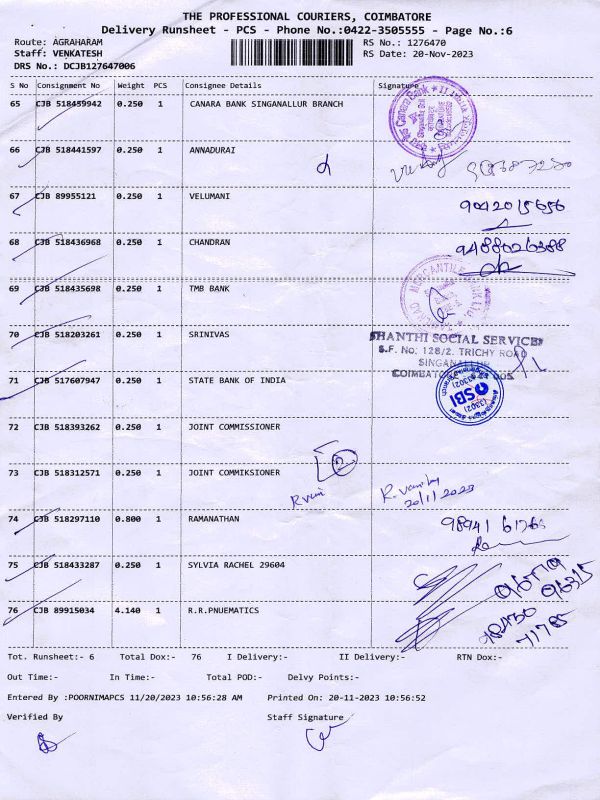 THE PROFESSIONAL COURIERS, COIMBATORE
Delivery Runsheet - PCS - Phone No.:0422-3505555 - Page No.:6
Route: AGRAHARAM RS No.: 1276470
Staff: VENKATESH RS Date: 20-Nov-2023
DRS No.: DCJB127647006
S No Consignment No Weight PCS Consignee Details Signature
65 CJB 518459942 0.250 1 CANARA BANK SINGANALLUR BRANCH
Canara Bank
66 CJB 518441597 0.250 1 ANNADURAI
67 CJB 89955121 0.250 1 VELUMANI 9042015656
68 CJB 518436968 0.250 1 CHANDRAN 9488026388
69 CJB 518435698 0.250 1 TMB BANK
MERCANTILE
70 CJB 518203261 0.250 1 SRINIVAS
SHANTHI SOCIAL SERVICES
S.F. No: 128/2, TRICHY ROAD
SINGANALLUR
71 CJB 517607947 0.250 1 STATE BANK OF INDIA
SBI
72 CJB 518393262 0.250 1 JOINT COMMISSIONER
2
73 CJB 518312571 0.250 1 JOINT COMMIKSIONER
20/11/2023
74 CJB 518297110 0.800 1 RAMANATHAN
75 CJB 518433287 0.250 1 SYLVIA RACHEL 29604
76 CJB 89915034 4.140 1 R.R.PNUEMATICS
Tot. Runsheet:- 6 Total Dox:- 76 I Delivery:- II Delivery:- RTN Dox:-
Out Time:- In Time:- Total POD:- Delvy Points:-
Entered By :POORNIMAPCS 11/20/2023 10:56:28 AM Printed On: 20-11-2023 10:56:52
Verified By Staff Signature